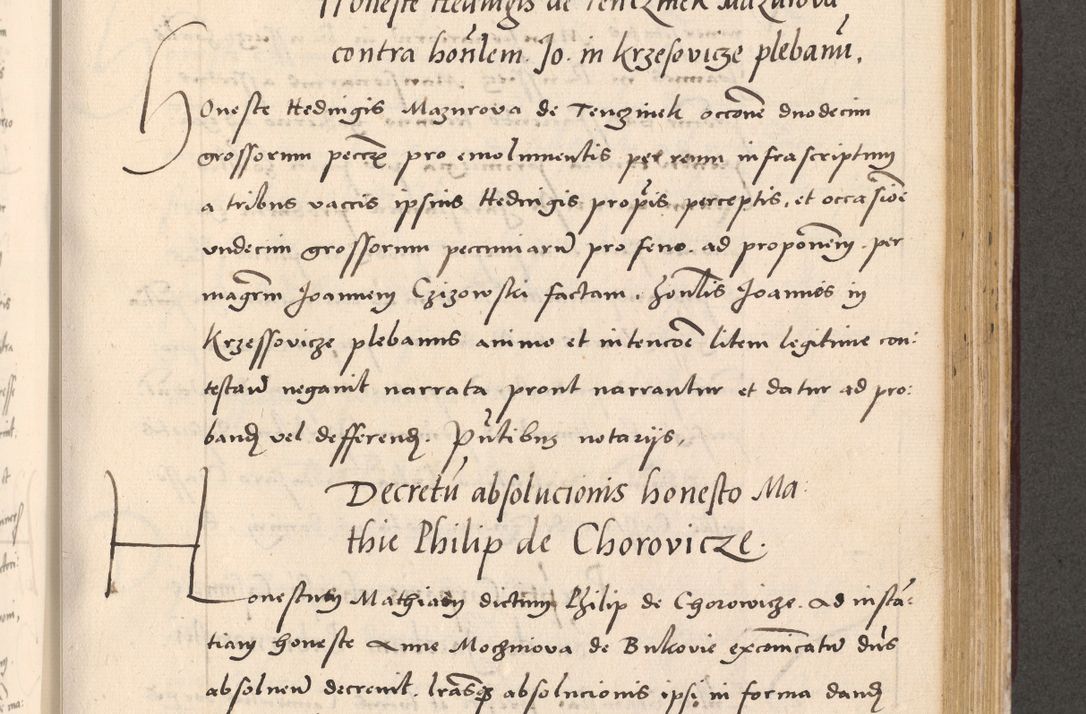 Honeste Hedwigis de Tenczinek Mazurova
contra hon̄lem. Jo. in Krzesovicze plebanū.
Honeste Hedwigis Mazurova de Tenczinek occōne duodecim
grossorum pro emolumentis per reum infrascriptum
a tribus vaccis ipsius Hedwigis prop̄is perceptis, et occasiōe
undecim grossorum pecuniarū pro feno. ad propōnem per
magr̄m Joannem Czizowski factam. hon̄lis Joannes in
Krzessovicze plebanus animo et intencōe litem legitime con:
testan̄ negavit narrata prout narrantur et datur ad pro:
band vel defferend. Pn̄tibus notariis,
Decretū absolucionis honesto Ma
thie Philip de Chorovicze.
Honestum Mathiam dictum Philip de Chorowicze. Ad instā:
tiam honeste Anne Mochniova de Bukovie excōicatū dn̄s
absolven̄ decrevit. lr̄asq absolucionis ipsi in forma dand